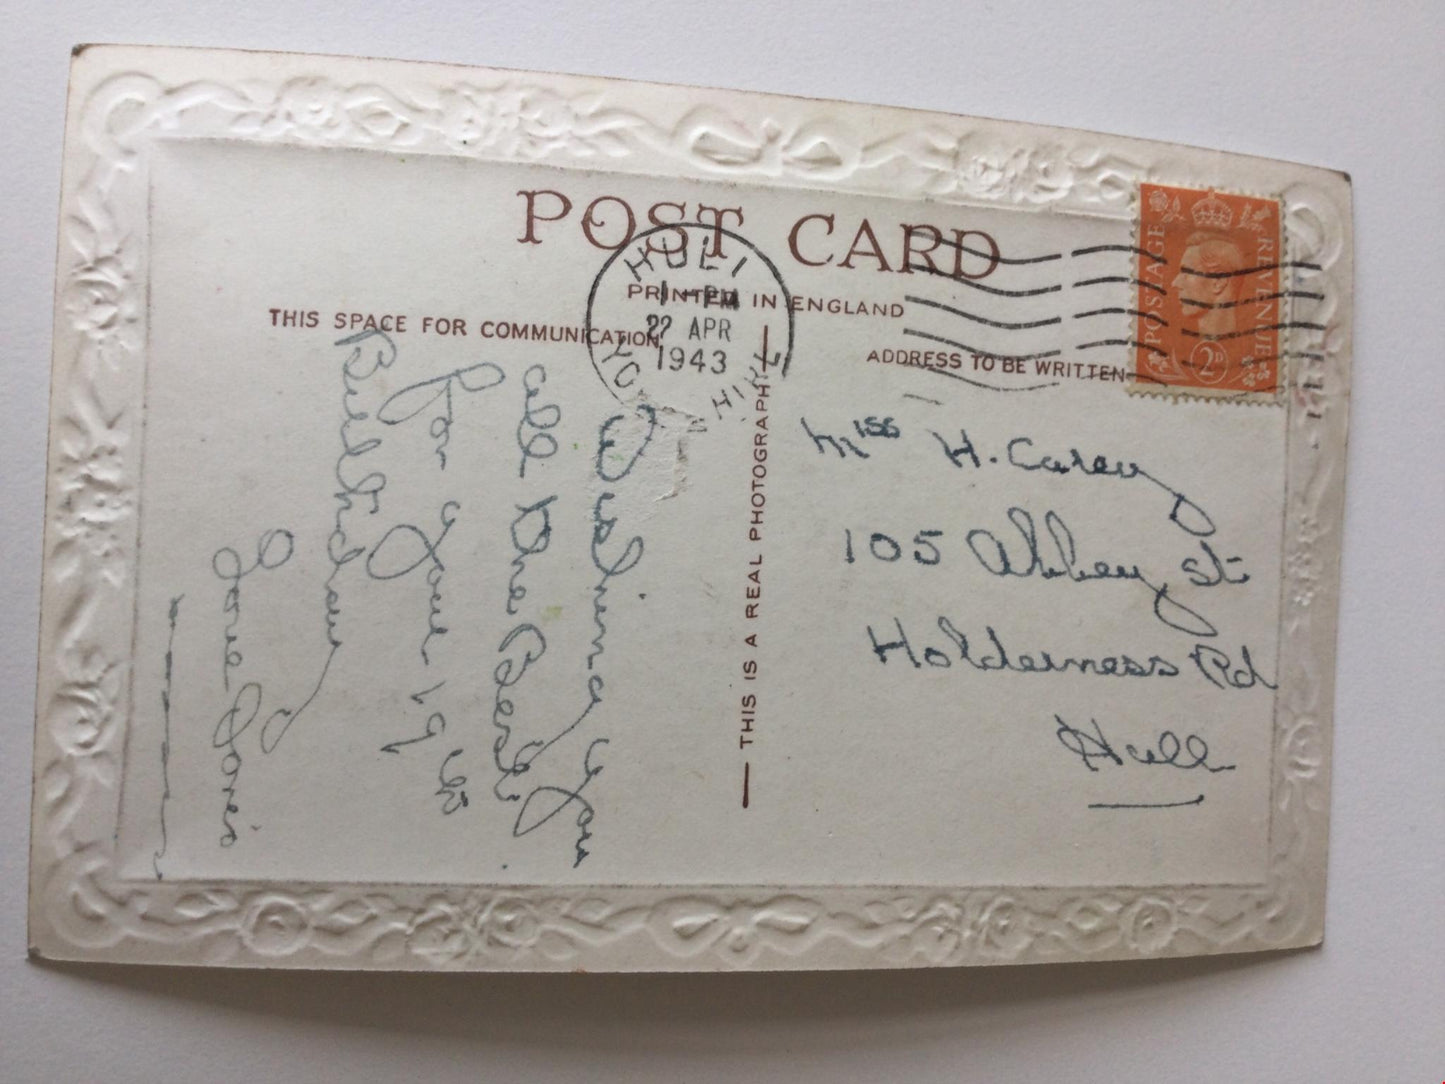 POST CARD
PRINTED IN ENGLAND
THIS SPACE FOR COMMUNICATION
ADDRESS TO BE WRITTEN
THIS IS A REAL PHOTOGRAPH
HULL
1 - PM
22 APR
1943
YO SHIRE
POSTAGE
REVENUE
2D
Wishing you
all the Best
for your 19th
Birthday
Love Doris
Miss H. Carey
105 Abbey St
Holderness Rd
Hull